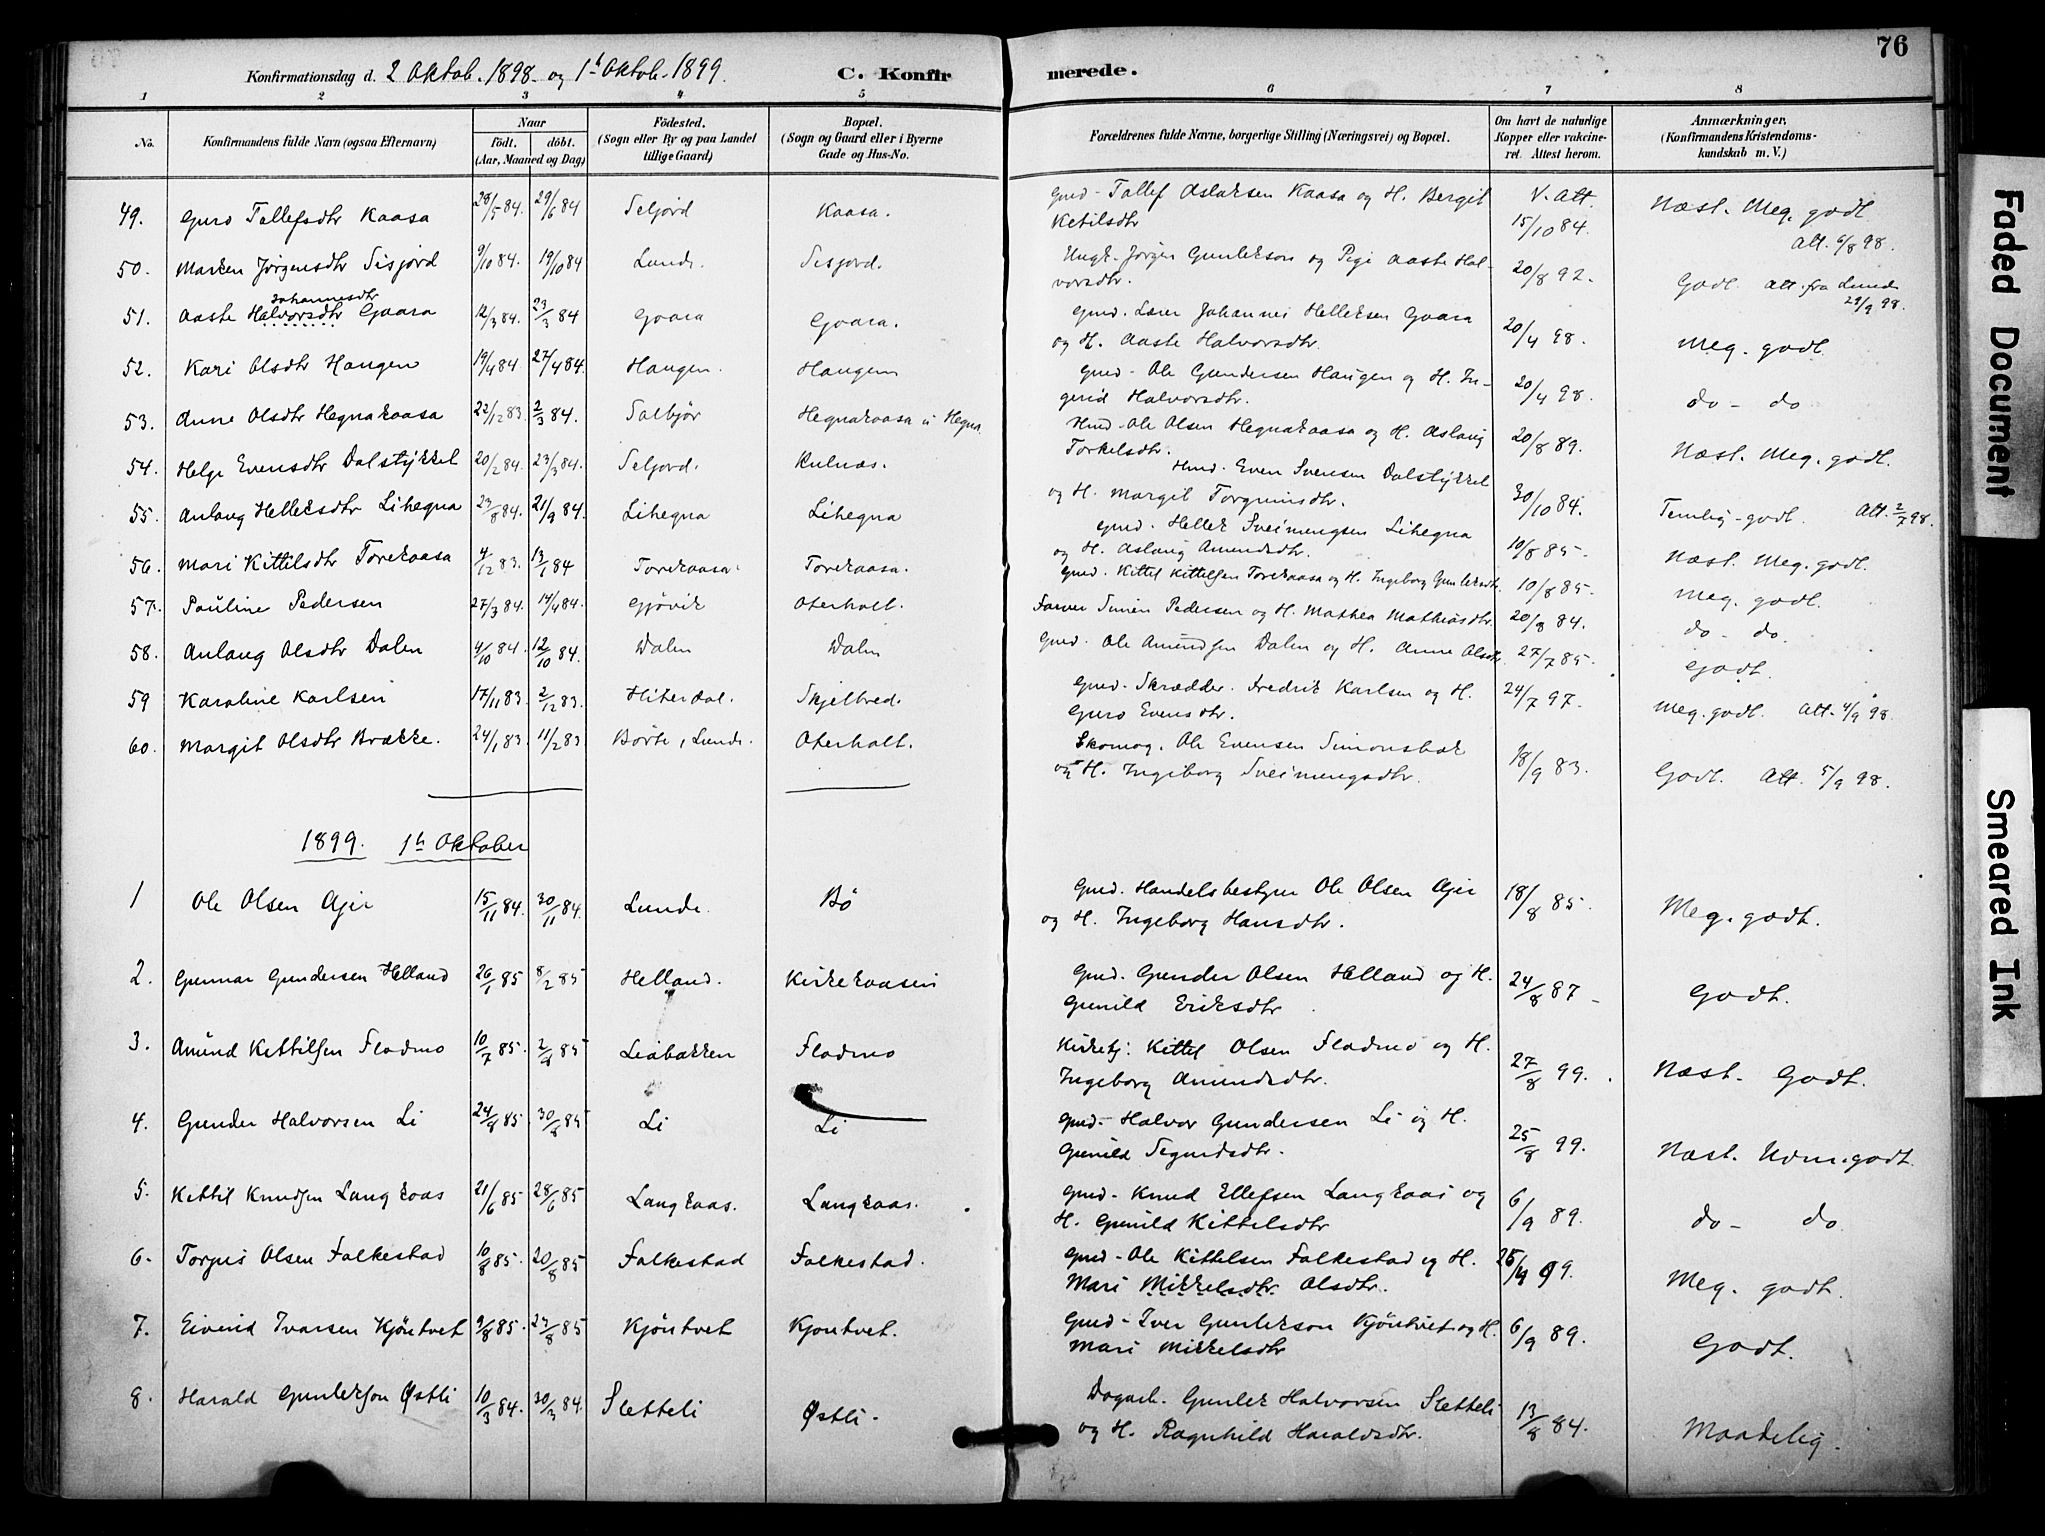 76
Konfirmationsdag d. 2 Oktob. 1898 og 1ste Oktob. 1899. C. Konfirmerede.
1 2 3 4 5 6 7 8
No. Konfirmandens fulde Navn (ogsaa Efternavn) Naar født. døbt. (Aar, Maaned og Dag) Fødested. (Sogn eller By og paa Landet tillige Gaard) Bopæl. (Sogn og Gaard eller i Byerne Gade og Hus-No. Forældrenes fulde Navne, borgerlige Stilling (Næringsvei) og Bopæl. Om havt de naturlige Kopper eller vakcineret. Attest herom. Anmærkninger. (Konfirmandens Kristendomskundskab m. V.)
49. Guro Tallefsdtr Kaasa 28/5 84. 29/6 84 Seljord Kaasa. Gmd. Tallef Aslaksen Kaasa og H. Bergit Ketilsdtr V. Att. 15/10 84. Næst. Meg. godt Att. 6/8 98.
50. Marken Jørgensdtr Sisjord 9/10 84. 19/10 84 Lunde. Sisjord. Ungk. Jørgen Gunleksen og Pige Aaste Halvorsdtr. 20/8 92. Godt. Att. fra Lunde 29/9 98.
51. Aaste Johannesdtr Halvorsdtr Gaara 12/3 84. 23/3 84 Gaara Gaara. Gmd. Lærer Johannes Helleksen Gaara og H. Aaste Halvorsdtr. 20/4 98. Meg. godt
52. Kari Olsdtr Haugen 19/4 84 27/4 84. Haugen. Haugen Gmd. Ole Gundersen Haugen og H. Ingerid Halvorsdtr. 20/4 98. do - do
53. Anne Olsdtr Hegnakaasa 22/12 83. 2/3 84. Salbjør Hegnakaasa u Hegna Hmd. Ole Olsen Hegnakaasa og H. Aslaug Torkelsdtr. 20/8 89. Næst. Meg. godt.
54. Helge Evensdtr Dalstykkel 20/2 84. 23/3 84. Seljord. Kulnæs. Hmd. Even Svensen Dalstykkel og H. Margit Torgrimsdtr. 30/10 84. Temlig-godt. Att. 2/7 98.
55. Anlaug Helleksdtr Lihegna 23/8 84. 21/9 84. Lihegna Lihegna Gmd. Hellek Sveinungsen Lihegna og H. Aslaug Amundsdtr. 10/8 85. Næst. Meg. godt.
56. Mari Kittilsdtr Torekaasa 4/12 83. 13/1 84 Torekaasa. Torekaasa. Gmd. Kittel Kittelsen Torekaasa og H. Ingeborg Gunleksdtr. 10/8 85. Meg. godt.
57. Pauline Pedersen 27/3 84. 14/4 84. Gjøvik Oterholt. Farver Simen Pedersen og H. Mathea Mathiasdtr. 20/8 84. do - do.
58. Anlaug Olsdtr Dalen 4/10 84. 12/10 84. Dalen Dalen Gmd. Ole Amundsen Dalen og H. Anne Olsdtr. 27/7 85. Godt.
59 Karoline Karlsen 17/11 83. 2/12 83. Hiterdal. Skjelbred. Gmd. Skrædder. Fredrik Karlsen og H. Guro Evensdtr. 24/7 97. Meg. godt. Att. 4/9 98.
60. Margit Olsdtr Brække. 24/1 83. 11/2 83 Børte, Lunde. Oterholt. Skomag. Ole Evensen Simonsbak og H. Ingeborg Sveinungsdtr. 18/9 83. Godt. Att. 5/9 98.
1899. 1ste Oktober
1 Ole Olsen Ajer 15/11 84. 30/11 84. Lunde. Bø Gmd. Handelsbestyrer Ole Olsen Ajer og H. Ingeborg Hansdtr. 18/8 85. Meg. godt.
2. Gunnar Gundersen Helland 26/1 85 8/2 85 Helland. Kirkekaasen Gmd. Gunder Olsen Helland og H. Gunild Eriksdtr. 24/8 87 Godt.
3. Amund Kettilsen Fladmo 10/7 85. 2/8 85 Liabakken Fladmo Kirketj. Kittel Olsen Fladmo og H. Ingeborg Amundsdtr. 27/8 99. Næst. Godt.
4. Gunder Halvorsen Li 24/8 85. 30/8 85 Li Li Gmd. Halvor Gundersen Li og H. Gunild Sigurdsdtr. 25/8 99. Næst. Udm. godt.
5. Kettil Knudsen Langkaas 21/6 85 28/6 85 Langkaas. Langkaas. Gmd. Knud Ellefsen Langkaas og H. Gunild Kittelsdtr 6/9 89. do - do
6. Torjus Olsen Falkestad 10/8 85. 20/8 85 Falkestad Falkestad. Gmd. Ole Kittelsen Falkestad og H. Mari Mikkelsdtr. Olsdtr. 25/9 99. Meg. godt.
7. Eivind Ivarsen Kjøntvet 9/8 85. 23/8 85 Kjøntvet Kjøntvet. Gmd. Iver Gunleksen Kjøntvet og H. Mari Mikkelsdtr 6/9 89. Godt.
8. Harald Gunleksen Østli 10/3 84. 30/3 84. Sletteli Østli. Dagarb. Gunlek Halvorsen Sletteli og H. Ragnhild Haraldsdtr. 13/8 84. Maadelig.
Faded Document
Smeared Ink